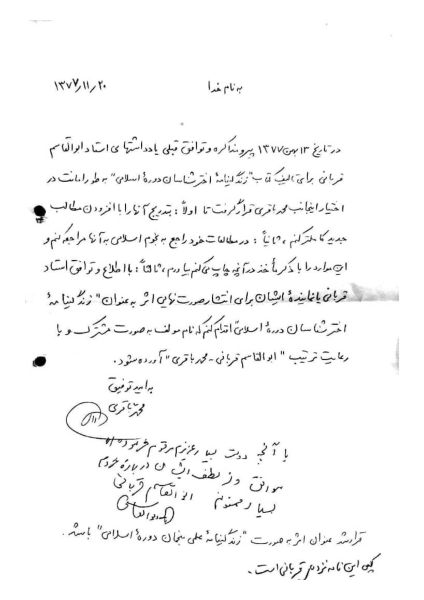 به نام خدا
۱۳۷۷/۱۱/۲۰
در تاریخ ۱۳ بهمن ۱۳۷۷ پیرو مذاکره و توافق قبلی یادداشتهای استاد ابوالقاسم
قربانی برای تألیف کتاب "زندگینامهٔ اخترشناسان دورهٔ اسلامی" به طور امانت در
اختیار اینجانب محمد باقری قرار گرفت تا اولاً: بتدریج آنها را با افزودن مطالب
جدید کاملتر کنم، ثانیاً: در مطالعات خود راجع به نجوم اسلامی به آنها مراجعه کنم و
این موارد را با ذکر مأخذ در آنچه چاپ می‌کنم بیاورم، ثالثاً: با اطلاع و توافق استاد
قربانی یا نمایندهٔ ایشان برای انتشار صورت نهایی اثر به عنوان "زندگینامهٔ
اخترشناسان دورهٔ اسلامی" اقدام کنم که نام مولف به صورت مشترک و با
رعایت ترتیب "ابوالقاسم قربانی - محمد باقری" آورده شود.
به امید توفیق
محمد باقری
با آنچه دوست بسیار عزیزم مرقوم فرموده‌اند
موافق و از لطف ایشان درباره خودم
بسیار ممنونم ابوالقاسم قربانی
قرار شد عنوان اثر به صورت "زندگینامهٔ علمی منجمان دورهٔ اسلامی" باشد.
کپی این نامه نزد قربانی است.